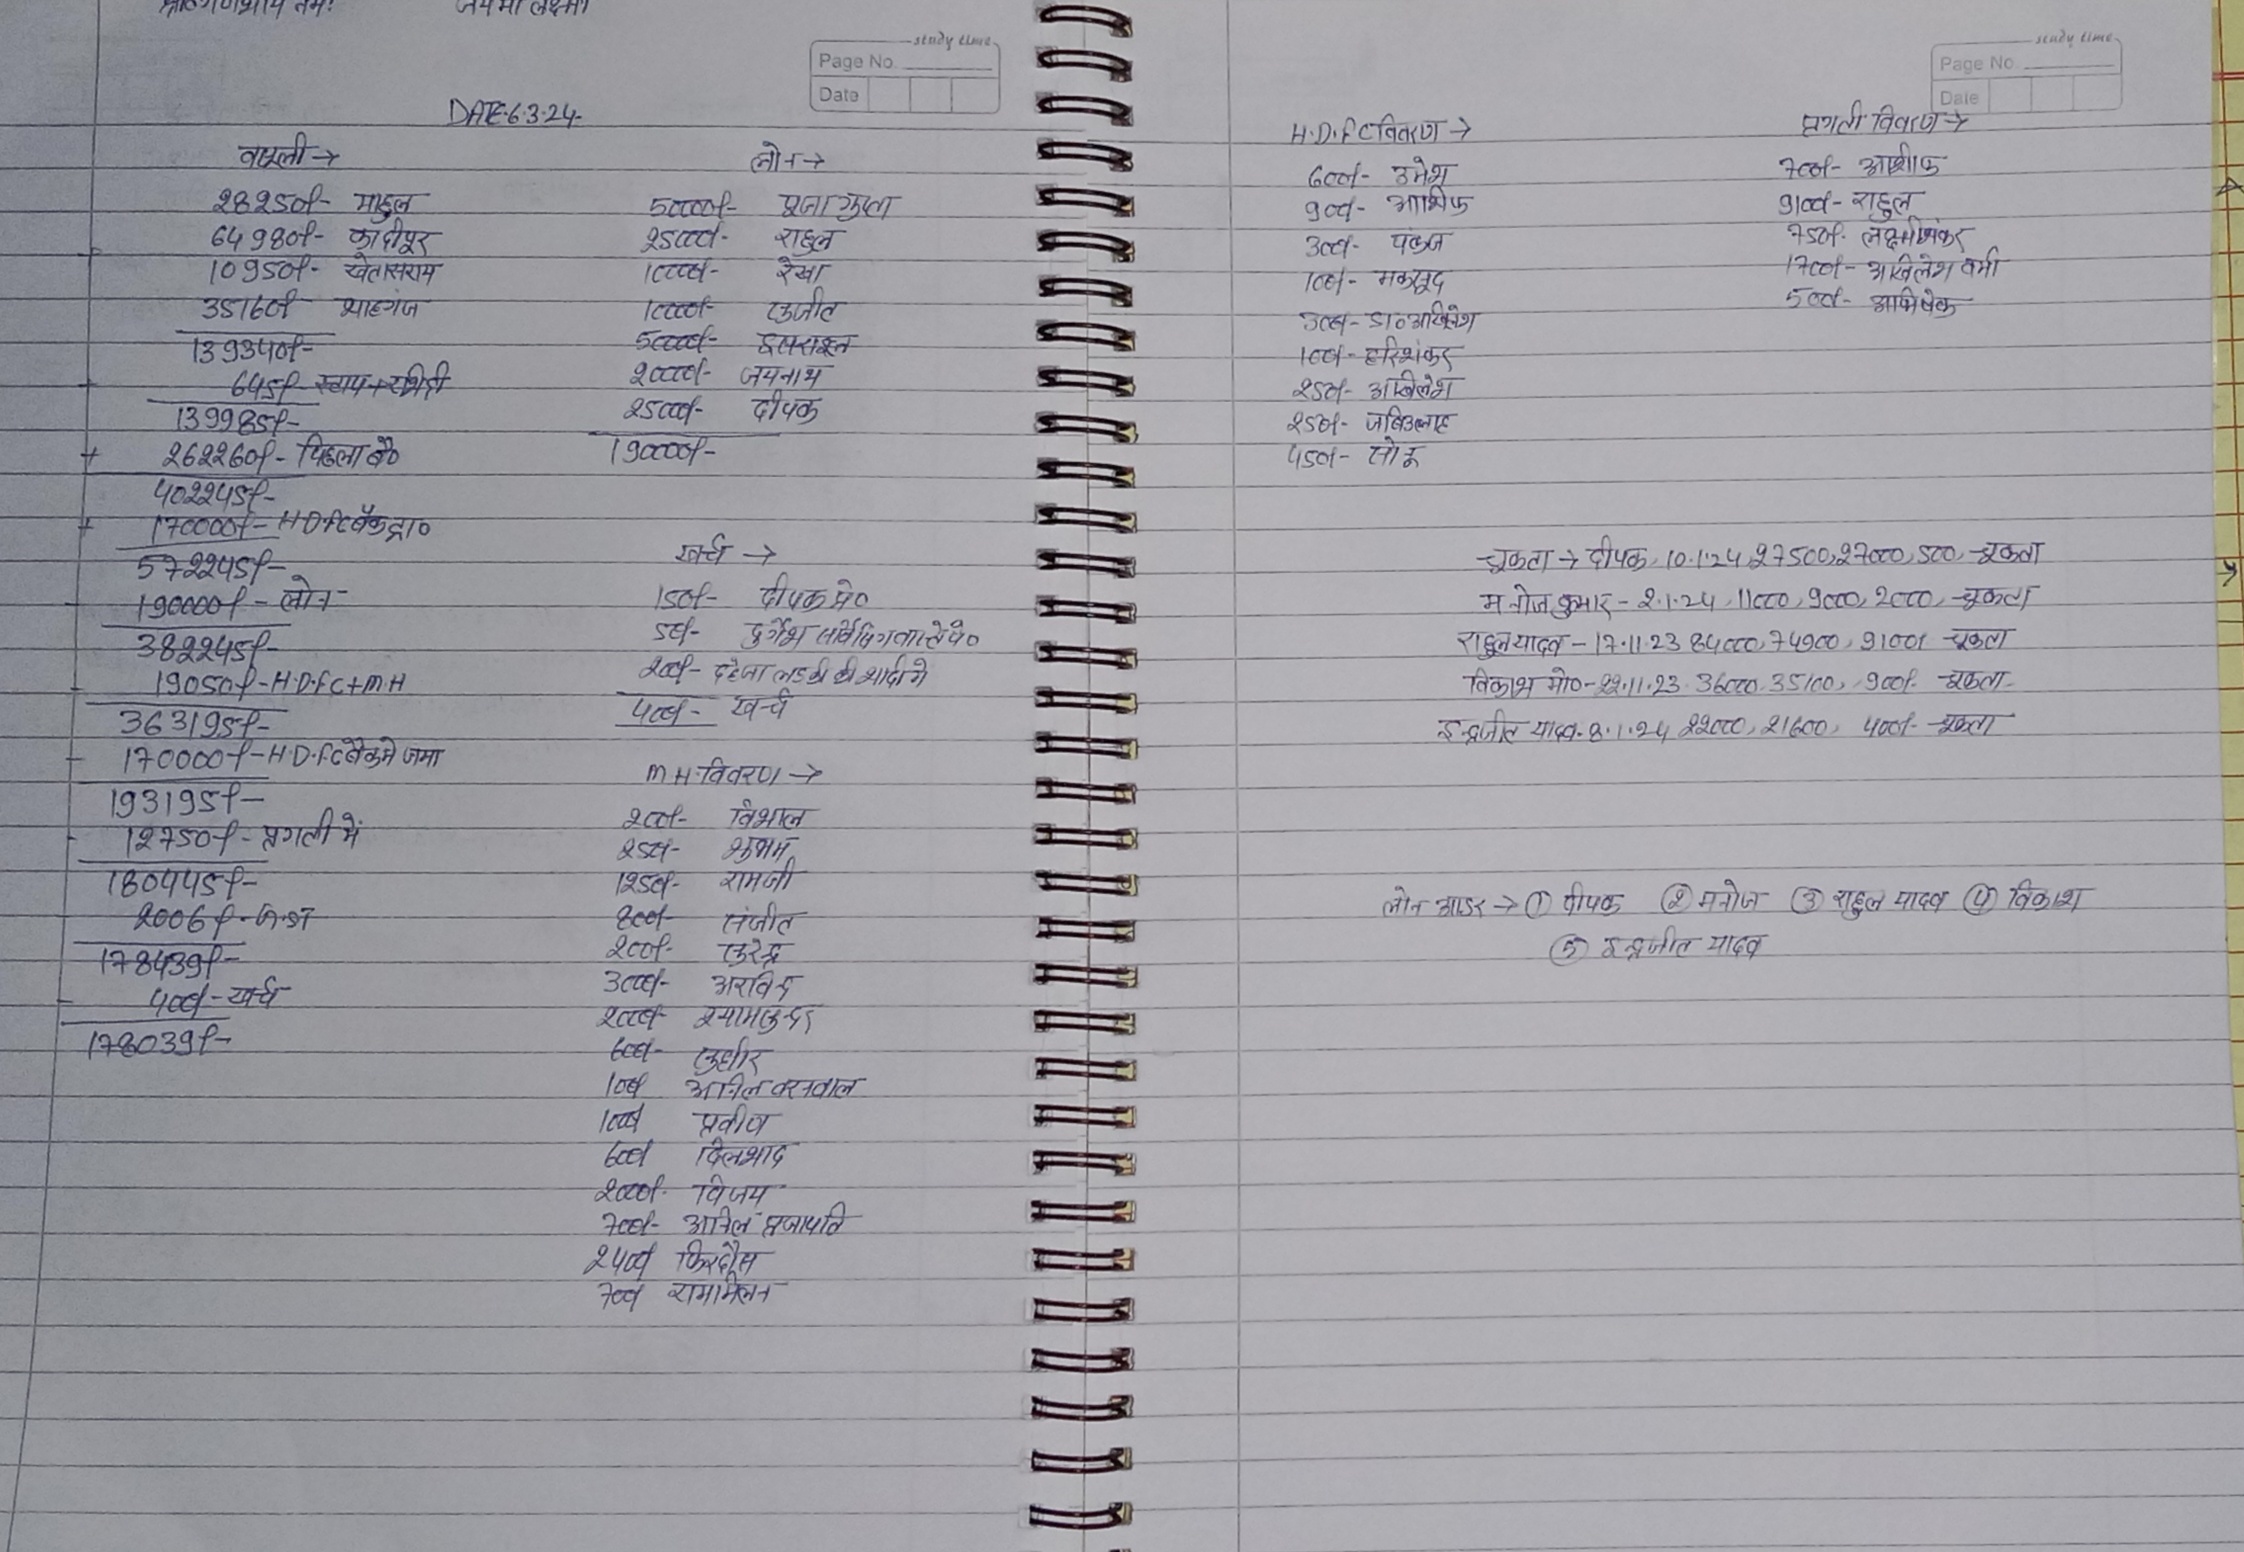 जय माँ लक्ष्मी
study time
Page No.
Date
DATE-6.3.24-
वसूली →
28250/- माहुल
64980/- कादीपुर
10950/- खेतासराय
35160/- शाहगंज
139340/-
645/-
139985/-
+ 262260/- पिछला बै०
402245/-
+ 170000/- H.D.F.C बैंक द्वा०
572245/-
- 190000/- लोन
382245/-
- 19050/- H.D.F.C + M.H
363195/-
- 170000/- H.D.F.C बैंक मे जमा
193195/-
- 12750/- प्रगती में
180445/-
2006/-
178439/-
- 400/- खर्च
178039/-
लोन →
50000/-
25000/- राहुल
10000/- रेखा
10000/- सुजीत
50000/-
20000/- जयनाथ
25000/- दीपक
190000/-
खर्च →
150/- दीपक पे०
50/- दुर्गेश
200/- लड़की की शादी मे
400/- खर्च
M.H. विवरण →
200/- विशाल
250/- शुभम
1250/- रामजी
800/- संजीत
200/- सुरेन्द्र
3000/- अरविन्द
2000/- श्यामसुन्दर
600/- सुधीर
100/- अनिल बरनवाल
1000/- प्रवीण
600/- दिलशाद
2000/- विजय
700/- अनिल प्रजापति
2400/- फिरदौस
700/- राममिलन
study time
Page No.
Date
H.D.F.C विवरण →
600/- उमेश
900/- आशिफ
300/- पंकज
100/- मकसूद
300/- डा० अखिलेश
100/- हरिशंकर
250/- अखिलेश
250/- जबिउल्लाह
450/- सोनू
प्रगती विवरण →
700/- आशीफ
9100/- राहुल
750/- लक्ष्मीशंकर
1700/- अखिलेश वर्मा
500/- अभिषेक
चूकता → दीपक, 10.1.24, 27500, 27000, 500, - चूकता
मनोज कुमार - 2.1.24, 11000, 9000, 2000, - चूकता
राहुल यादव - 17.11.23 84000, 74900, 9100/- चूकता
विकाश मो० - 22.11.23. 36000. 35100, - 900/- चूकता
इन्द्रजीत यादव. 8.1.24 22000, 21600, 400/- चूकता
लोन आडर → ① दीपक ② मनोज ③ राहुल यादव ④ विकाश
⑤ इन्द्रजीत यादव